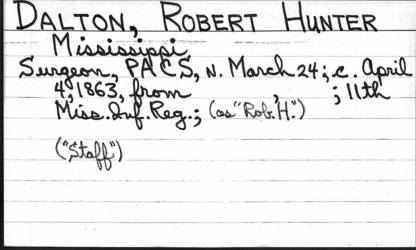 DALTON, ROBERT HUNTER
Mississippi
Surgeon, PACS, N. March 24; c. April
4, 1863, from , ; 11th
Miss. Inf. Reg.; (as "Rob. H.")
("Staff")